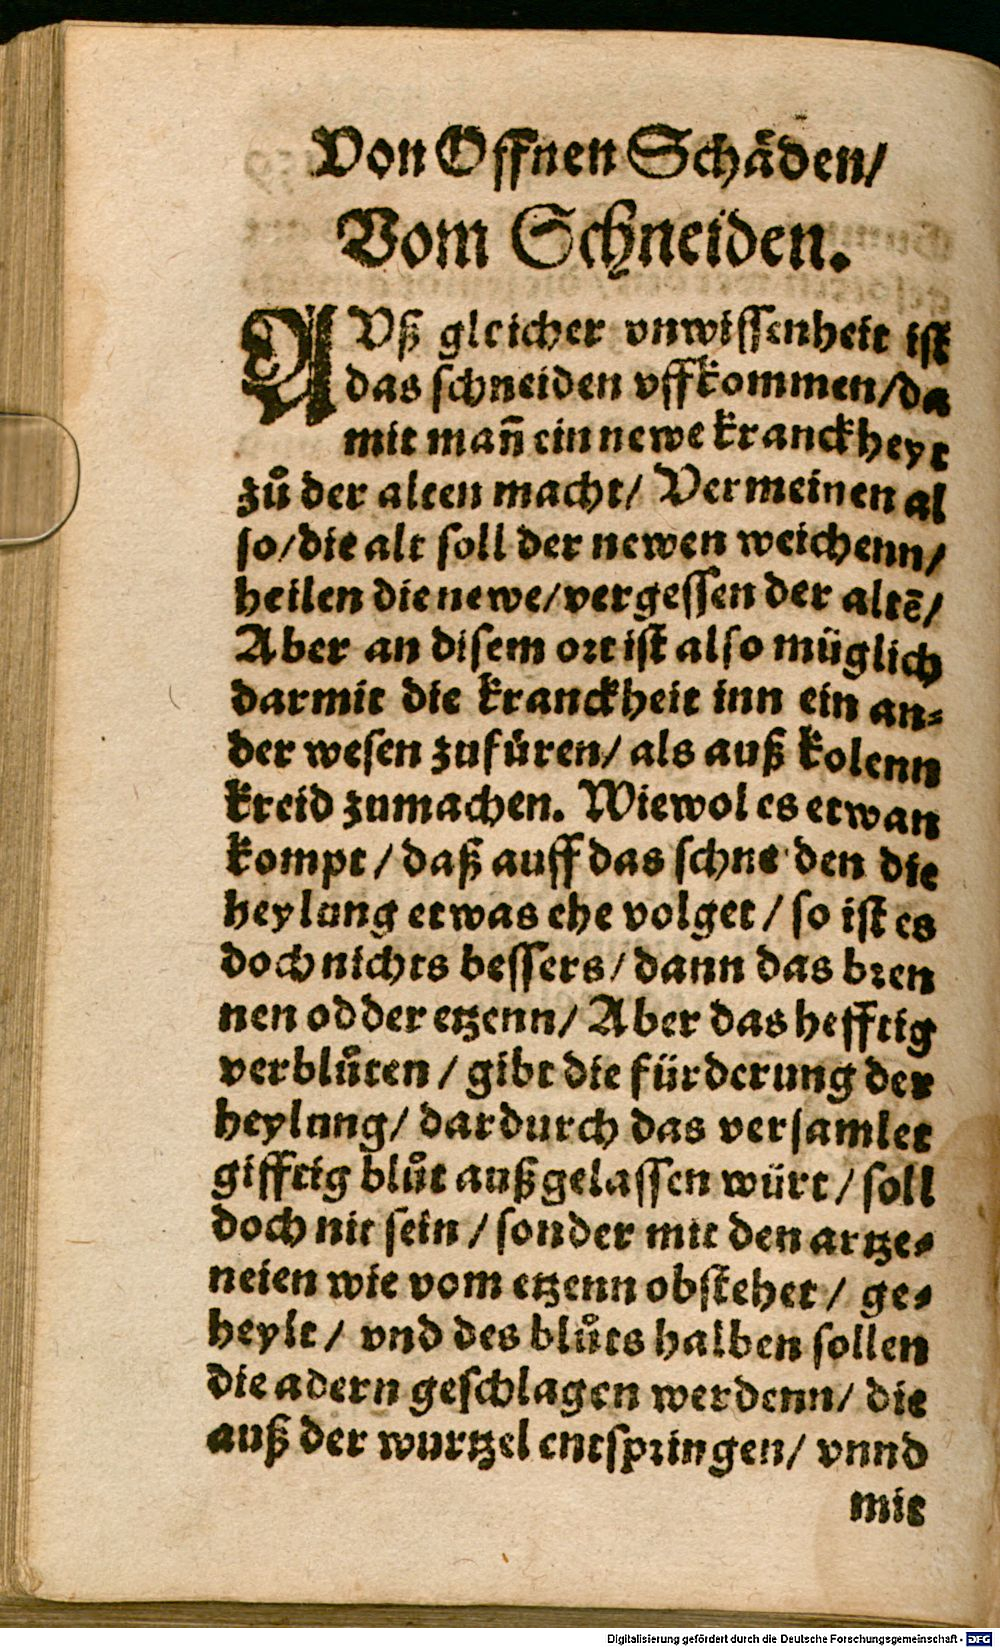 Von Offnen Schäden/
Vom Schneiden.
AVß gleicher vnwissenheit ist
das schneiden vffkommen/da
mit mañ ein newe kranckheyt
zů der alten macht/ Vermeinen al
so/die alt soll der newen weichenn/
heilen die newe/vergessen der altē/
Aber an disem ort ist also müglich
darmit die kranckheit inn ein an-
der wesen zufüren/ als auß kolenn
kreid zumachen. Wiewol es etwan
kompt/ daß auff das schne den die
heylung etwas ehe volget/ so ist es
doch nichts bessers/ dann das bren
nen odder etzenn/ Aber das hefftig
verblůten/ gibt die fürderung der
heylung/ dardurch das versamlet
gifftig blůt außgelassen würt/ soll
doch nit sein/ sonder mit den artze-
neien wie vom etzenn obstehet/ ge-
heylt/ vnd des blůts halben sollen
die adern geschlagen werdenn/ die
auß der wurtzel entspringen/ vnnd
mit
Digitalisierung gefördert durch die Deutsche Forschungsgemeinschaft - DFG